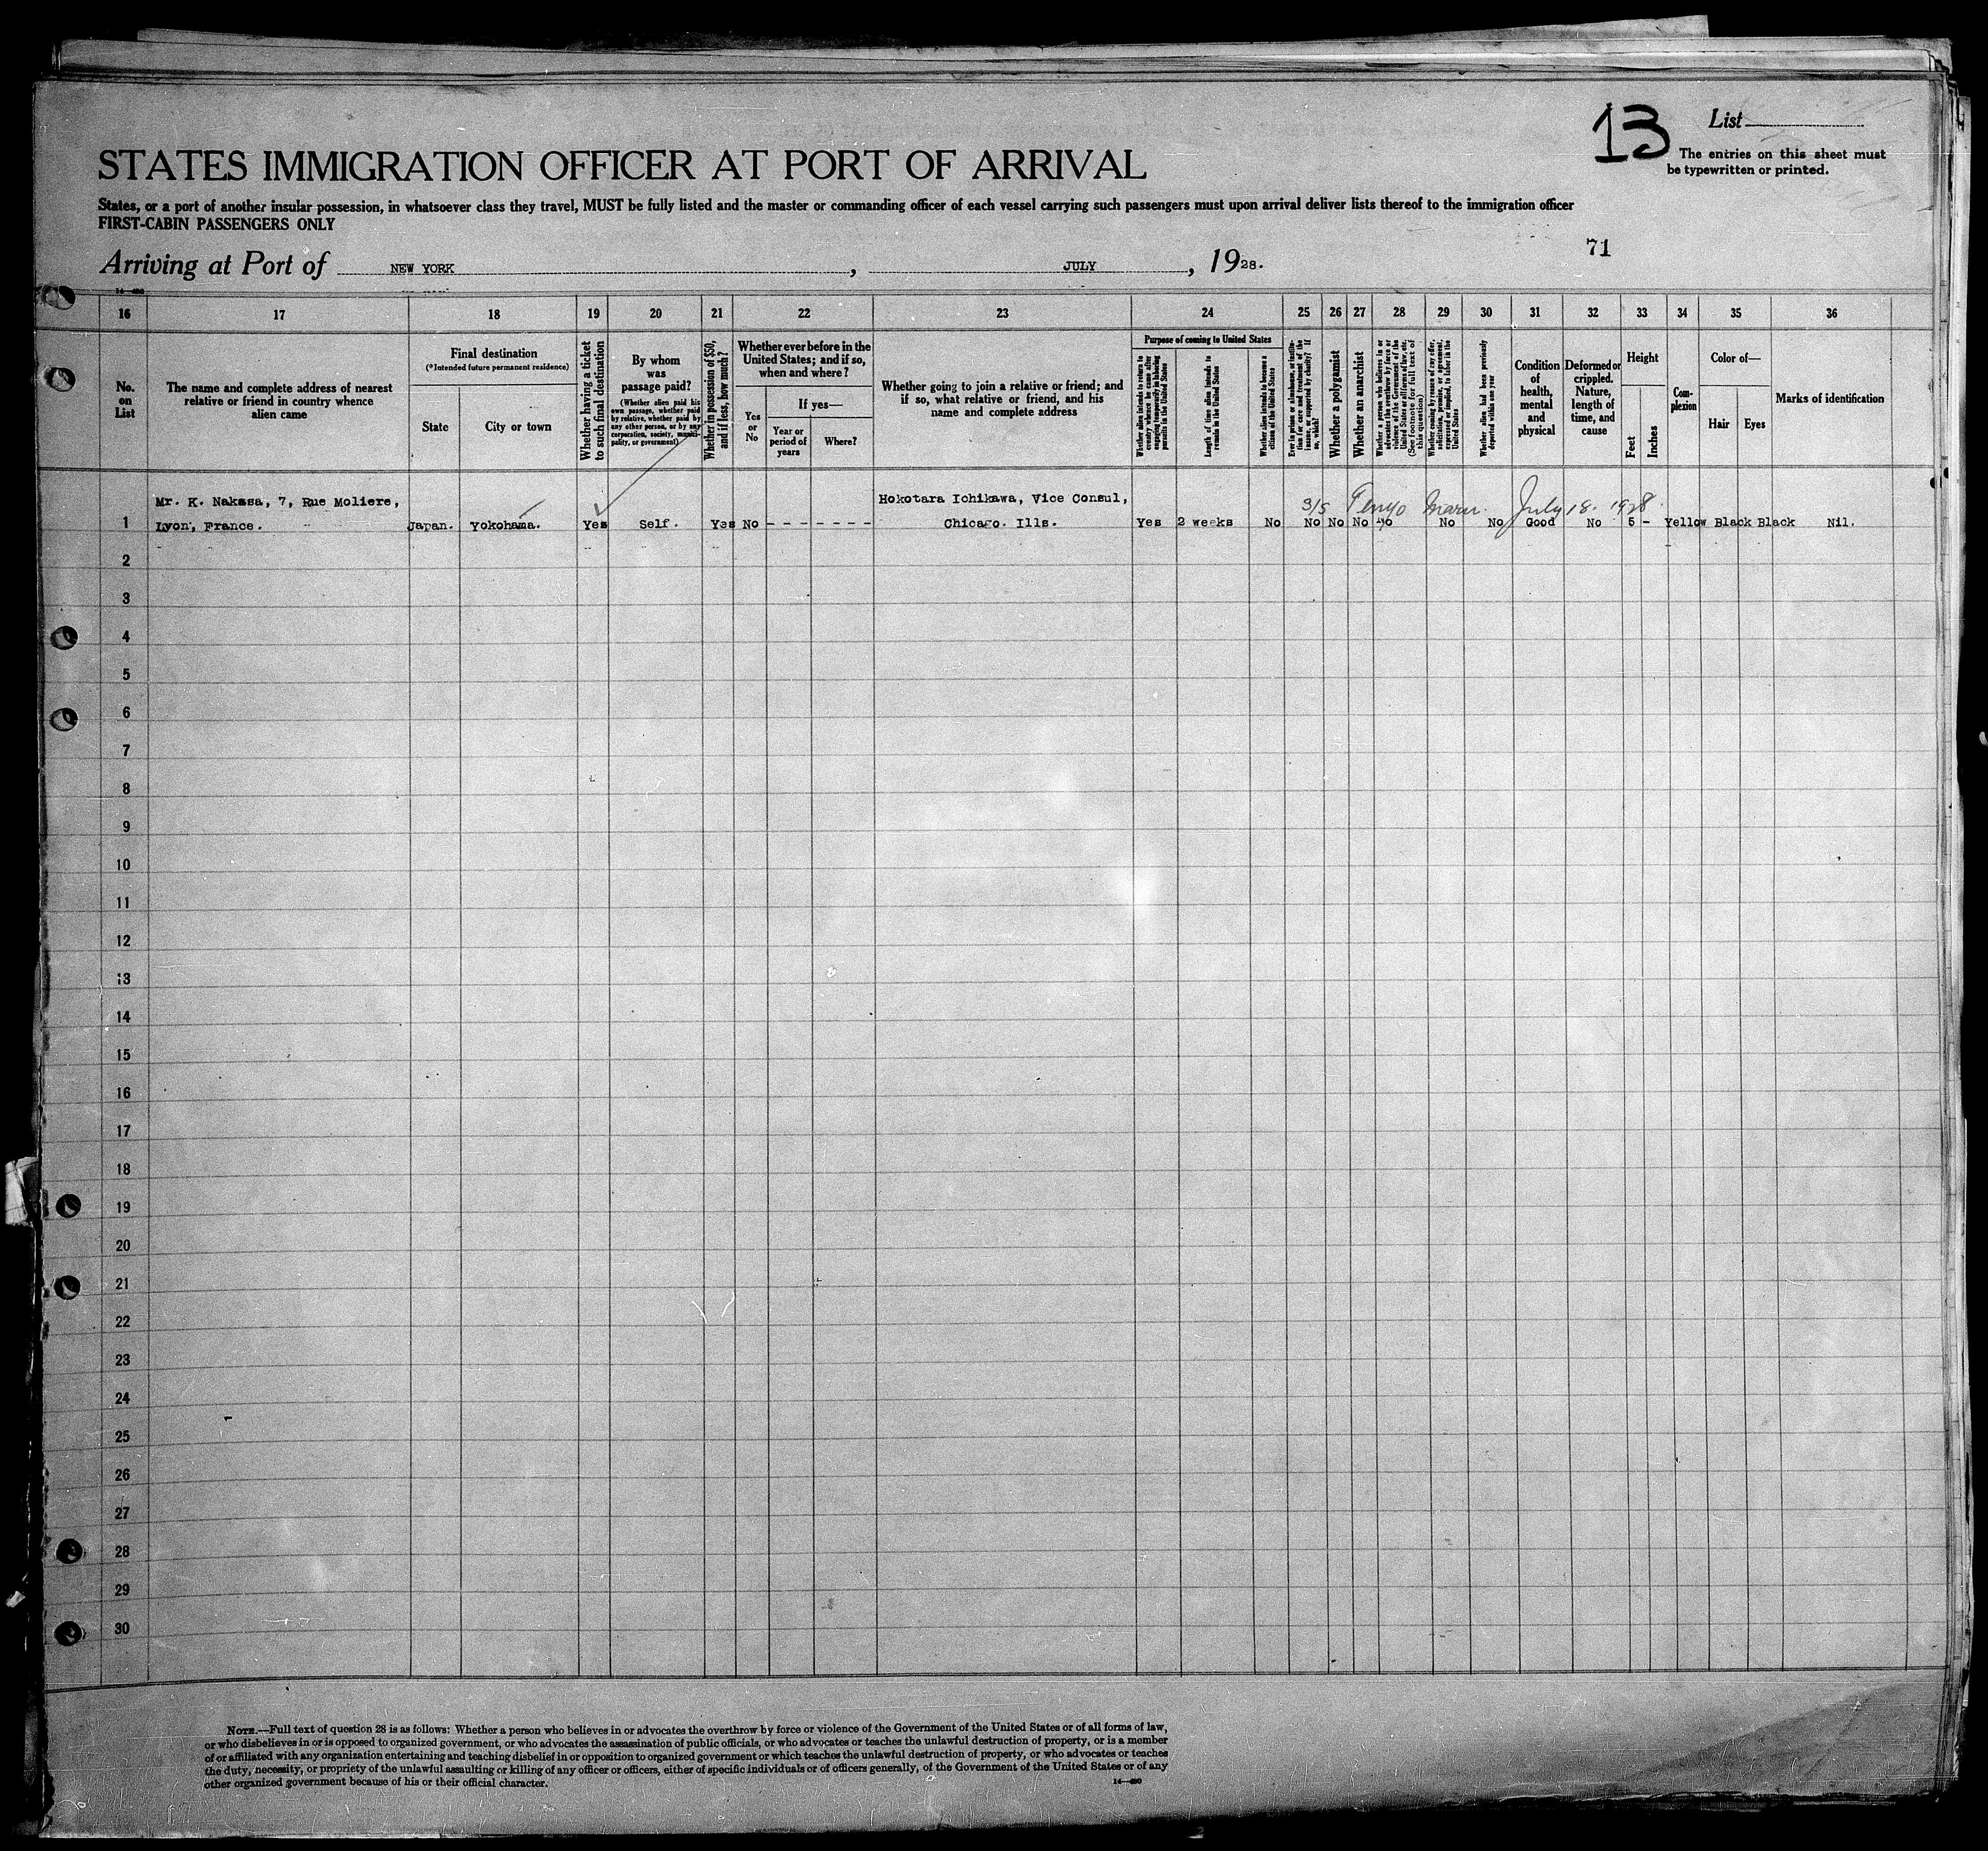 13
List
The entries on this sheet must
be typewritten or printed.
STATES IMMIGRATION OFFICER AT PORT OF ARRIVAL
States, or a port of another insular possession, in whatsoever class they travel, MUST be fully listed and the master or commanding officer of each vessel carrying such passengers must upon arrival deliver lists thereof to the immigration officer
FIRST-CABIN PASSENGERS ONLY
71
Arriving at Port of NEW YORK, JULY, 1928.
16 17 18 19 20 21 22 23 24 25 26 27 28 29 30 31 32 33 34 35 36
No.
on
List
The name and complete address of nearest
relative or friend in country whence
alien came
Final destination
(*Intended future permanent residence)
State
City or town
Whether having a ticket
to such final destination
By whom
was
passage paid?
(Whether alien paid his
own passage, whether paid
by relative, whether paid by
any other person, or by any
corporation, society, munici-
pality, or government)
Whether in possession of $50,
and if less, how much?
Whether ever before in the
United States; and if so,
when and where?
Yes
or
No
If yes—
Year or
period of
years
Where?
Whether going to join a relative or friend; and
if so, what relative or friend, and his
name and complete address
Purpose of coming to United States
Whether alien intends to return to
country whence he came after
engaging temporarily in laboring
pursuits in the United States
Length of time alien intends to
remain in the United States
Whether alien intends to become a
citizen of the United States
Ever in prison or almshouse, or institu-
tion for care and treatment of the
insane, or supported by charity? If
so, which?
Whether a polygamist
Whether an anarchist
Whether a person who believes in or
advocates the overthrow by force or
violence of the Government of the
United States or all forms of law, etc.
(See footnote for full text of
this question)
Whether coming by reason of any offer,
solicitation, promise, or agreement,
expressed or implied, to labor in the
United States
Whether alien had been previously
deported within one year
Condition
of
health,
mental
and
physical
Deformed or
crippled.
Nature,
length of
time, and
cause
Height
Feet
Inches
Com-
plexion
Color of—
Hair
Eyes
Marks of identification
S/S Tenyo Maru July 18. 1928
Mr. K. Nakasa, 7, Rue Moliere, Hokotara Ichikawa, Vice Consul,
1 Lyon, France. Japan. Yokohama. Yes Self. Yes No - - - - - - - Chicago. Ills. Yes 2 weeks No No No No No No No Good No 5 - Yellow Black Black Nil.
2
3
4
5
6
7
8
9
10
11
12
13
14
15
16
17
18
19
20
21
22
23
24
25
26
27
28
29
30
NOTE.—Full text of question 28 is as follows: Whether a person who believes in or advocates the overthrow by force or violence of the Government of the United States or of all forms of law,
or who disbelieves in or is opposed to organized government, or who advocates the assassination of public officials, or who advocates or teaches the unlawful destruction of property, or is a member
of or affiliated with any organization entertaining and teaching disbelief in or opposition to organized government or which teaches the unlawful destruction of property, or who advocates or teaches
the duty, necessity, or propriety of the unlawful assaulting or killing of any officer or officers, either of specific individuals or of officers generally, of the Government of the United States or of any
other organized government because of his or their official character.